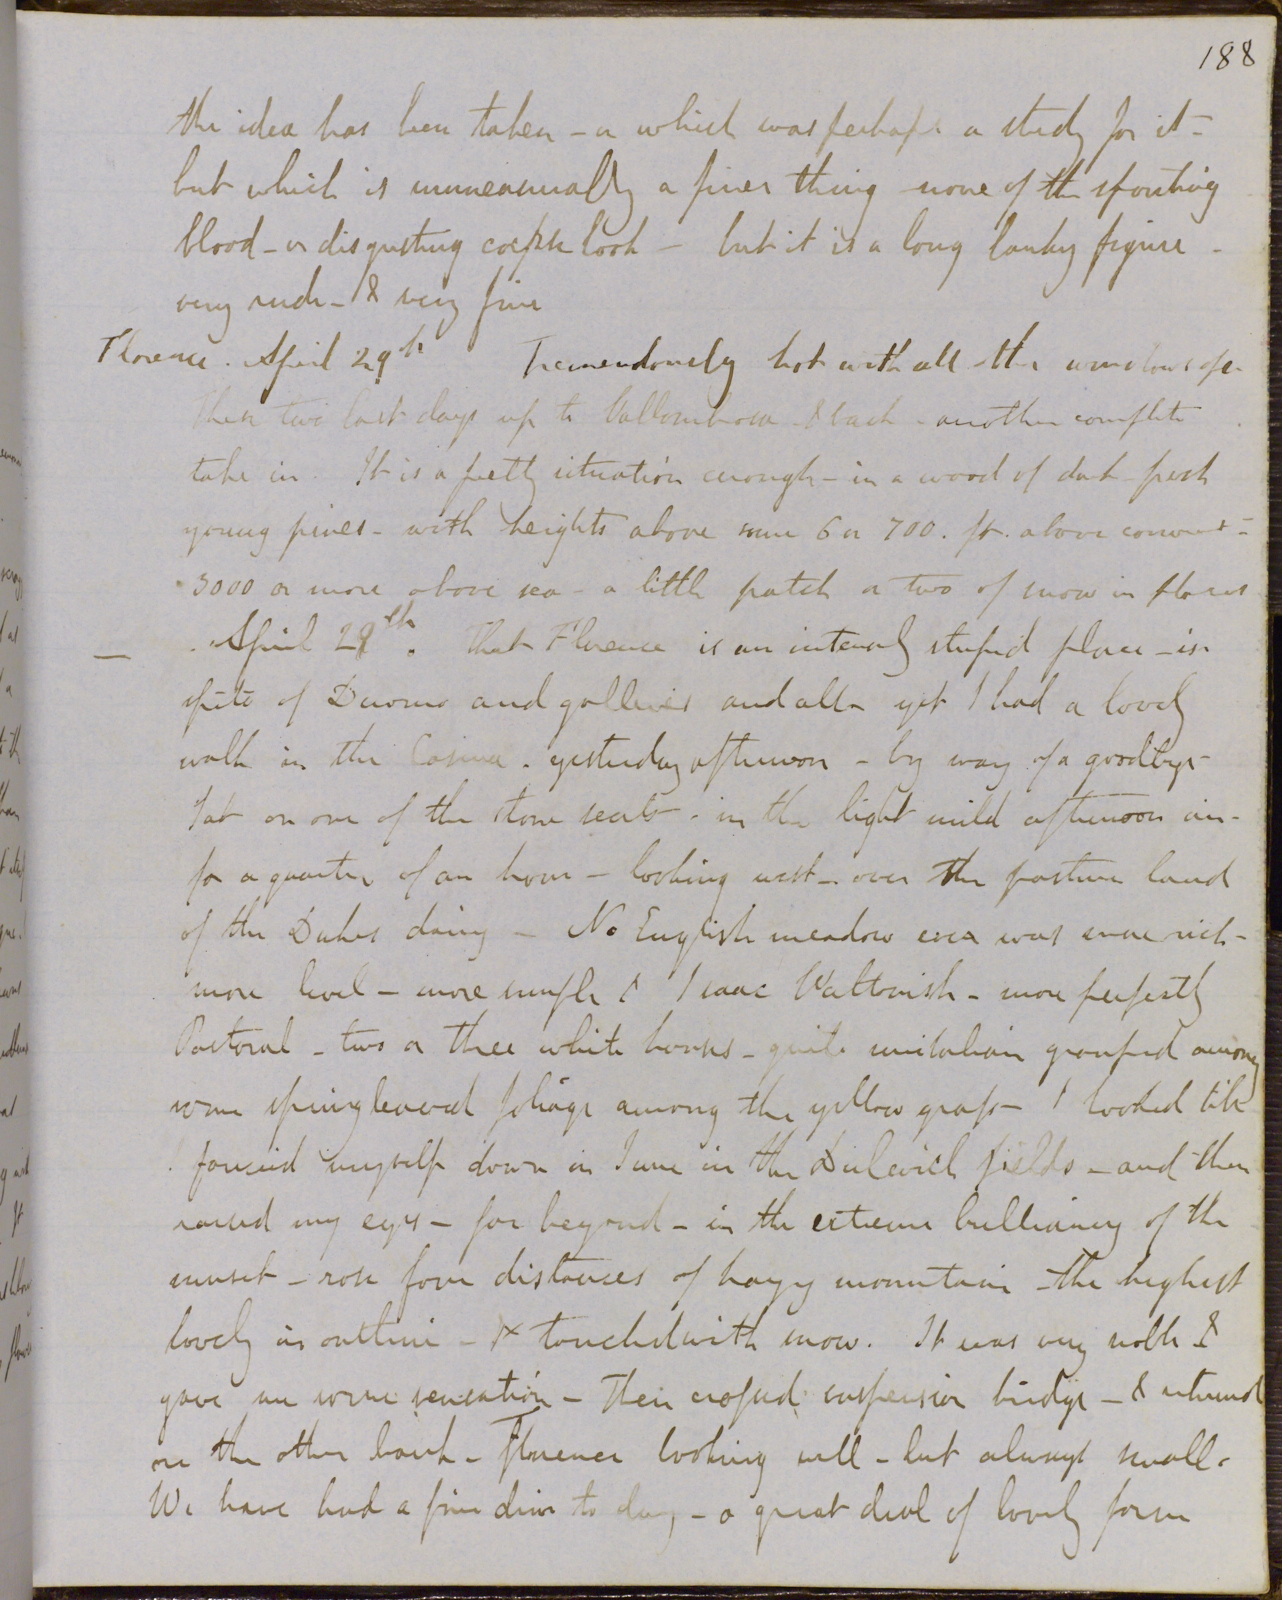 188
the idea has been taken - or which was perhaps a study for it -
but which is immeasurably a finer thing none of the spouting
blood - or disgusting corpse look - but it is a long lanky figure -
very rude - & very fine
Florence. April 29th Tremendously hot with all the windows open
These two last days up to Vallombrosa & back - another complete
take in. It is a pretty situation enough - in a wood of dark fresh
young pines - with heights above some 6 or 700. ft. above convent -
3000 or more above sea - a little patch or two of snow in places
— April 28th. That Florence is an intensely stupid place - in
spite of Duomo and galleries and all - yet I had a lovely
walk in the Casine. yesterday afternoon - by way of a goodbye -
Sat on one of the stone seats - in the light mild afternoon air -
for a quarter of an hour - looking west - over the pasture land
of the Dukes dairy - No English meadow ever was more rich -
more level - more simple & Isaac Waltonish - more perfectly
Pastoral - two or three white houses - quite unitalian grouped among
some springleaved foliage among the yellow grass - I looked till
I fancied myself down in June in the Dulwich fields - and then
raised my eyes - far beyond - in the extreme brilliancy of the
sunset - rose four distances of hazy mountain - the highest
lovely in outline - & touched with snow. It was very noble &
gave me some sensation - Then crossed suspension bridge - & returned
on the other bank - Florence looking well - but always small.
We have had a fine drive to day - a great deal of lovely form